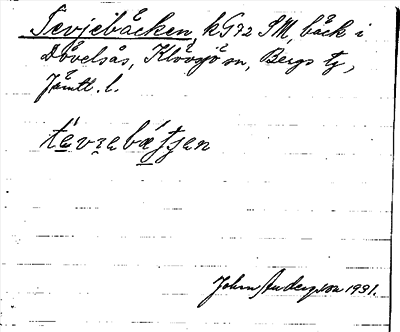 Tevjebäcken, kG32 SM, bäck i
Dövelsås, Klövsjö sn, Bergs tg,
Jämtl. l.
tévrebæʃtʃen
John Anderson 1931.